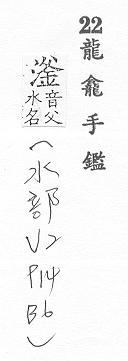 22龍龕手鑑
滏音父水名(水部V2P14B6)